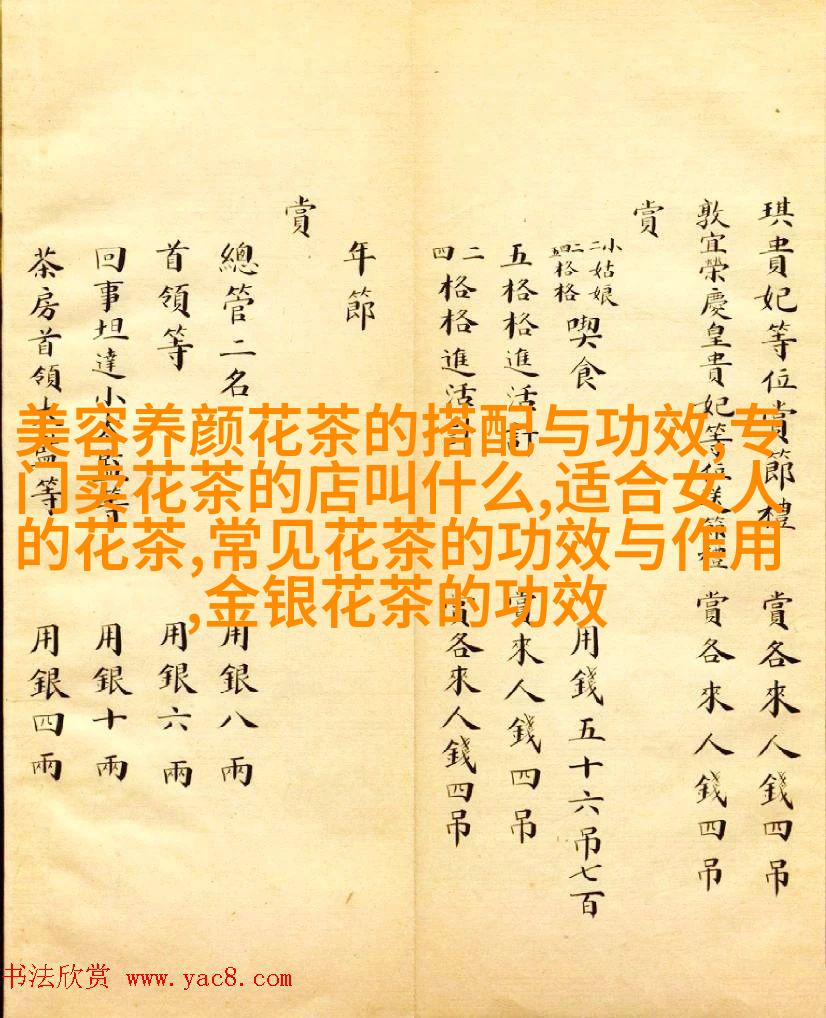 琪貴妃等位賞節禮 賞各來人錢四吊
敦宜榮慶皇貴妃等位送節禮 賞各來人錢四吊
賞
小姑娘
二格格
四格格
喫食 用錢五十六吊七百
五格格進活計 賞來人錢四吊
二
四
格格進活計 賞各來人錢四吊
年節
賞
總管二名 用銀八兩
首領等 用銀六兩
回事坦達小太監等 用銀十兩
茶房首領太監等 用銀四兩
美容养颜花茶的搭配与功效,专
门卖花茶的店叫什么,适合女人
的花茶,常见花茶的功效与作用
,金银花茶的功效
书法欣赏 www.yac8.com